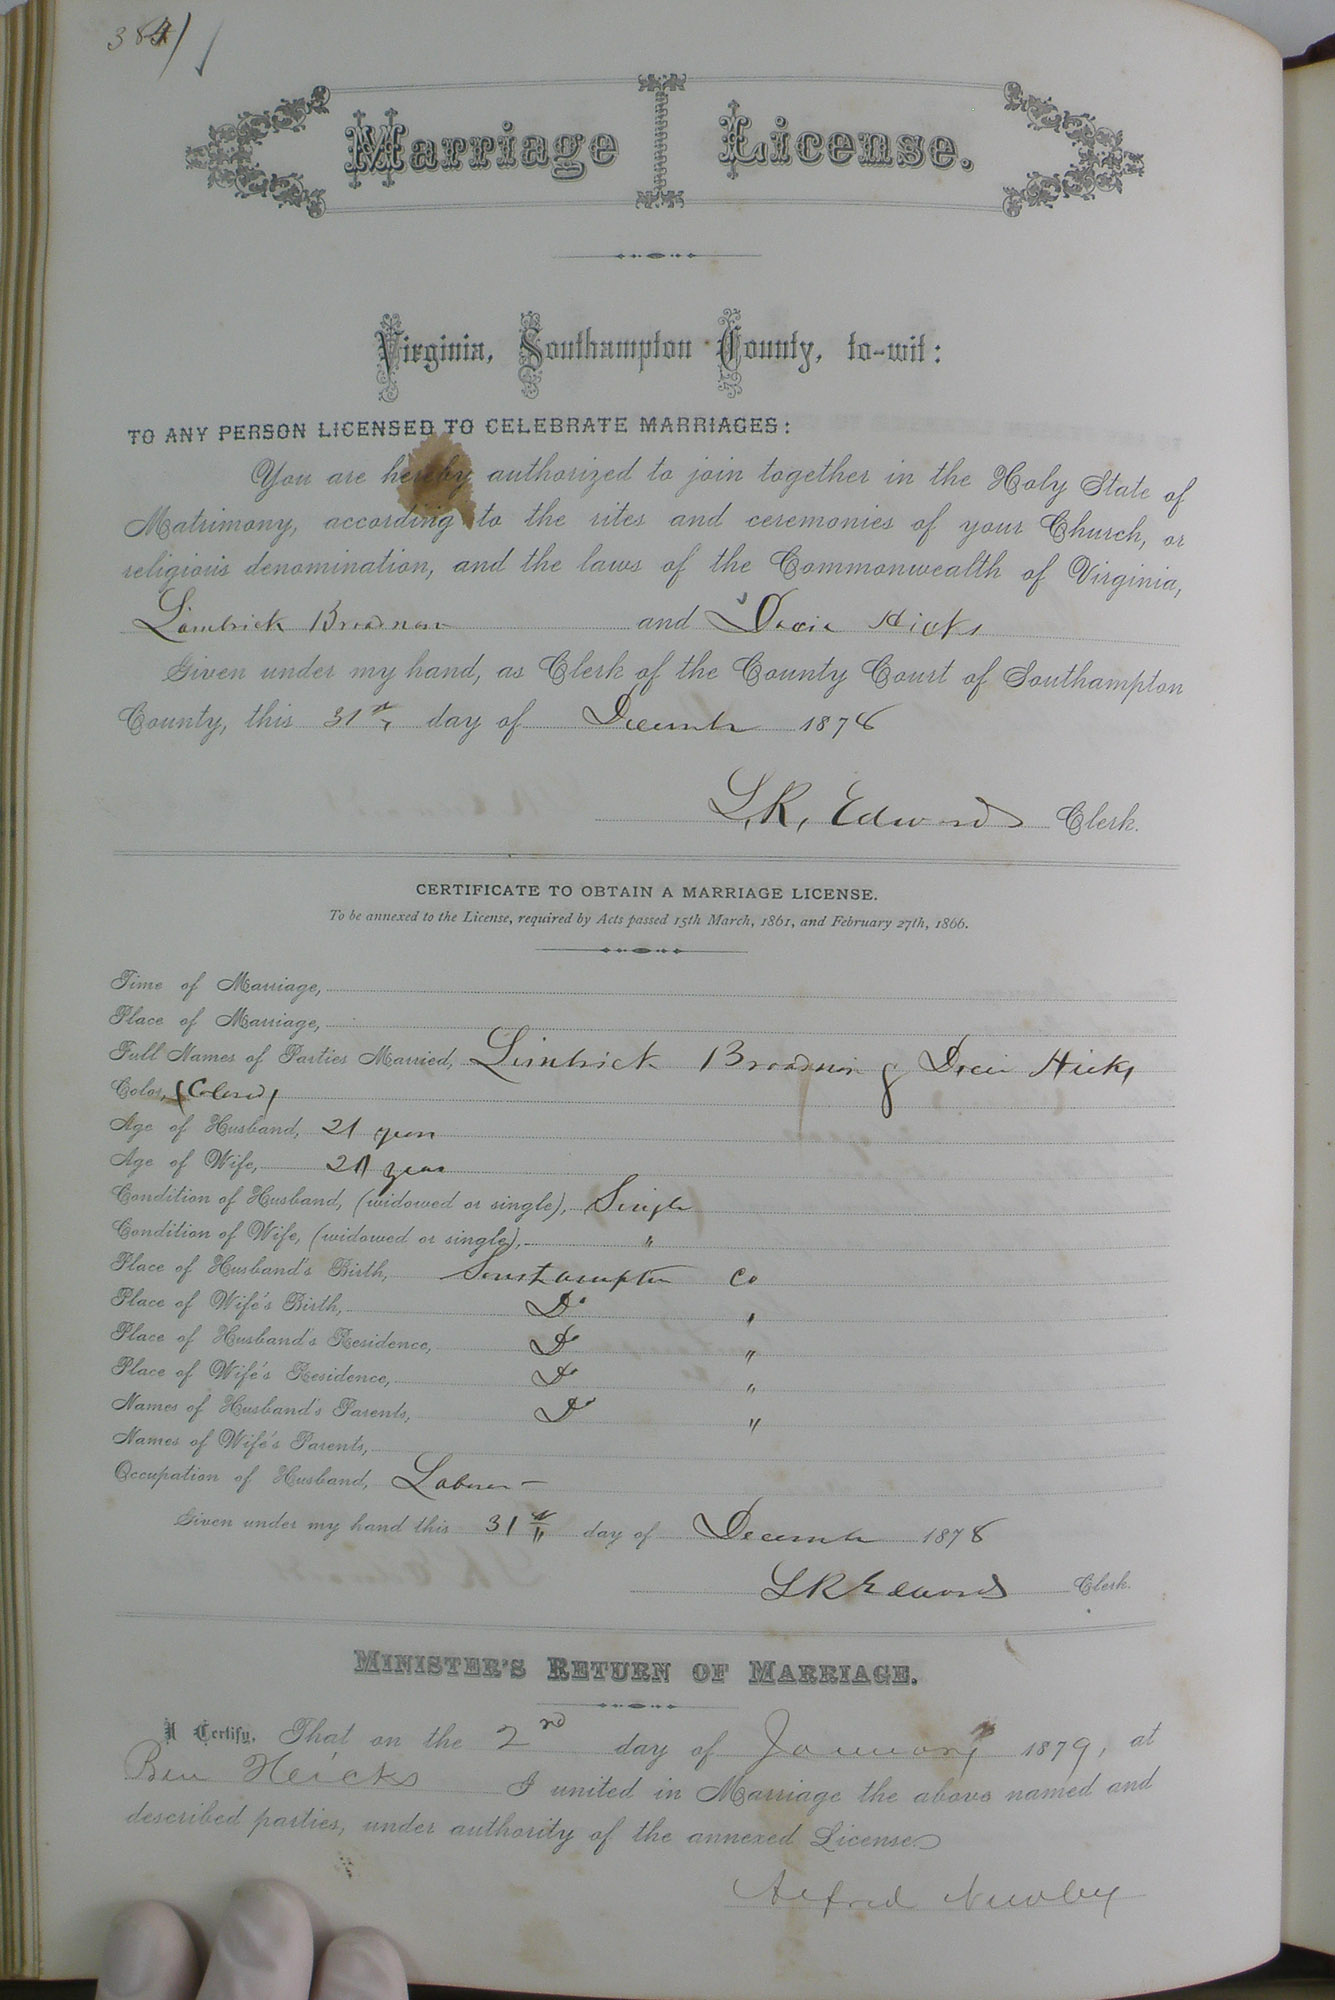 384
Marriage License.
Virginia, Southampton County, to-wit:
TO ANY PERSON LICENSED TO CELEBRATE MARRIAGES:
You are hereby authorized to join together in the Holy State of
Matrimony, according to the rites and ceremonies of your Church, or
religious denomination, and the laws of the Commonwealth of Virginia,
Limbrick Broadnax and Docie Hicks
Given under my hand, as Clerk of the County Court of Southampton
County, this 31st day of December 1878
L. R. Edwards Clerk.
CERTIFICATE TO OBTAIN A MARRIAGE LICENSE.
To be annexed to the License, required by Acts passed 15th March, 1861, and February 27th, 1866.
Time of Marriage,
Place of Marriage,
Full Names of Parties Married, Limbrick Broadnax & Docie Hicks
Color, (Colored)
Age of Husband, 21 years
Age of Wife, 21 years
Condition of Husband, (widowed or single), Single
Condition of Wife, (widowed or single), "
Place of Husband's Birth, Southampton Co
Place of Wife's Birth, Do "
Place of Husband's Residence, Do "
Place of Wife's Residence, Do "
Names of Husband's Parents, Do "
Names of Wife's Parents,
Occupation of Husband, Laborer
Given under my hand this 31st day of December 1878
L R Edwards Clerk.
MINISTER'S RETURN OF MARRIAGE.
I Certify, That on the 2nd day of January 1879, at
Ben Heicks I united in Marriage the above named and
described parties, under authority of the annexed License
Alfred Newby